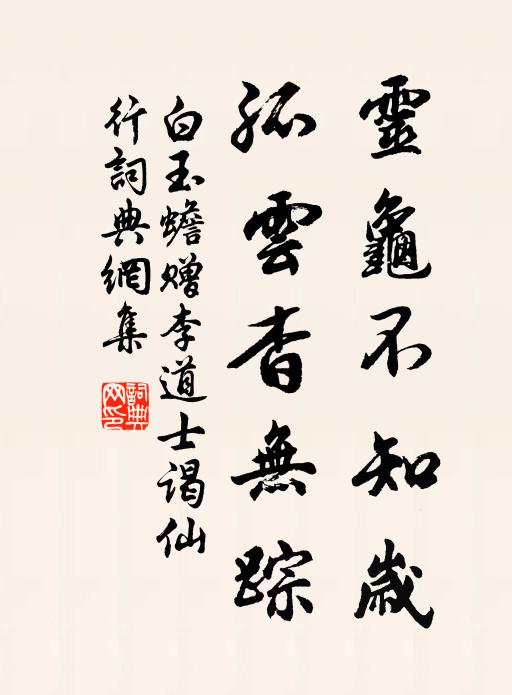 靈龜不知歲
孤雲杳無踪
白玉蟾贈李道士謁仙
行詞典網集
詞典網印